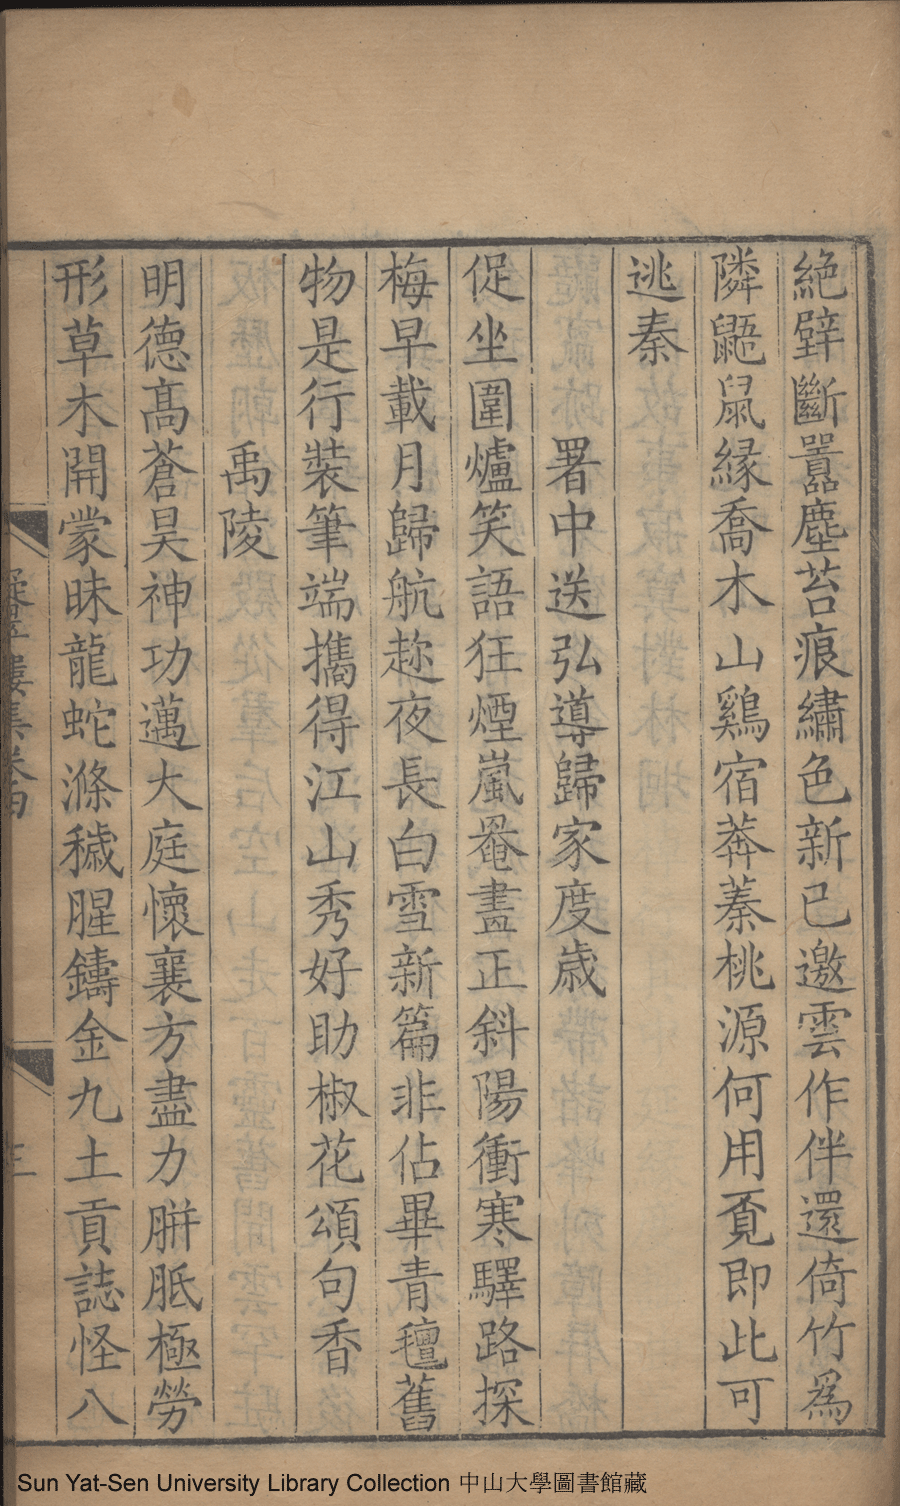 絶壁斷囂塵苔痕繡色新已邀雲作伴還倚竹爲
隣鼯鼠緣喬木山鷄宿莽蓁桃源何用覓即此可
逃秦
署中送弘導歸家度歲
促坐圍爐笑語狂煙嵐罨畫正斜陽衝寒驛路探
梅早載月歸航趂夜長白雪新篇非佔畢青氊舊
物是行裝筆端攜得江山秀好助椒花頌句香
禹陵
明德髙蒼昊神功邁大庭懷襄方盡力胼胝極勞
形草木開蒙昧龍蛇滌穢腥鑄金九土貢誌怪八
樓集卷四
Sun Yat-Sen University Library Collection 中山大學圖書館藏